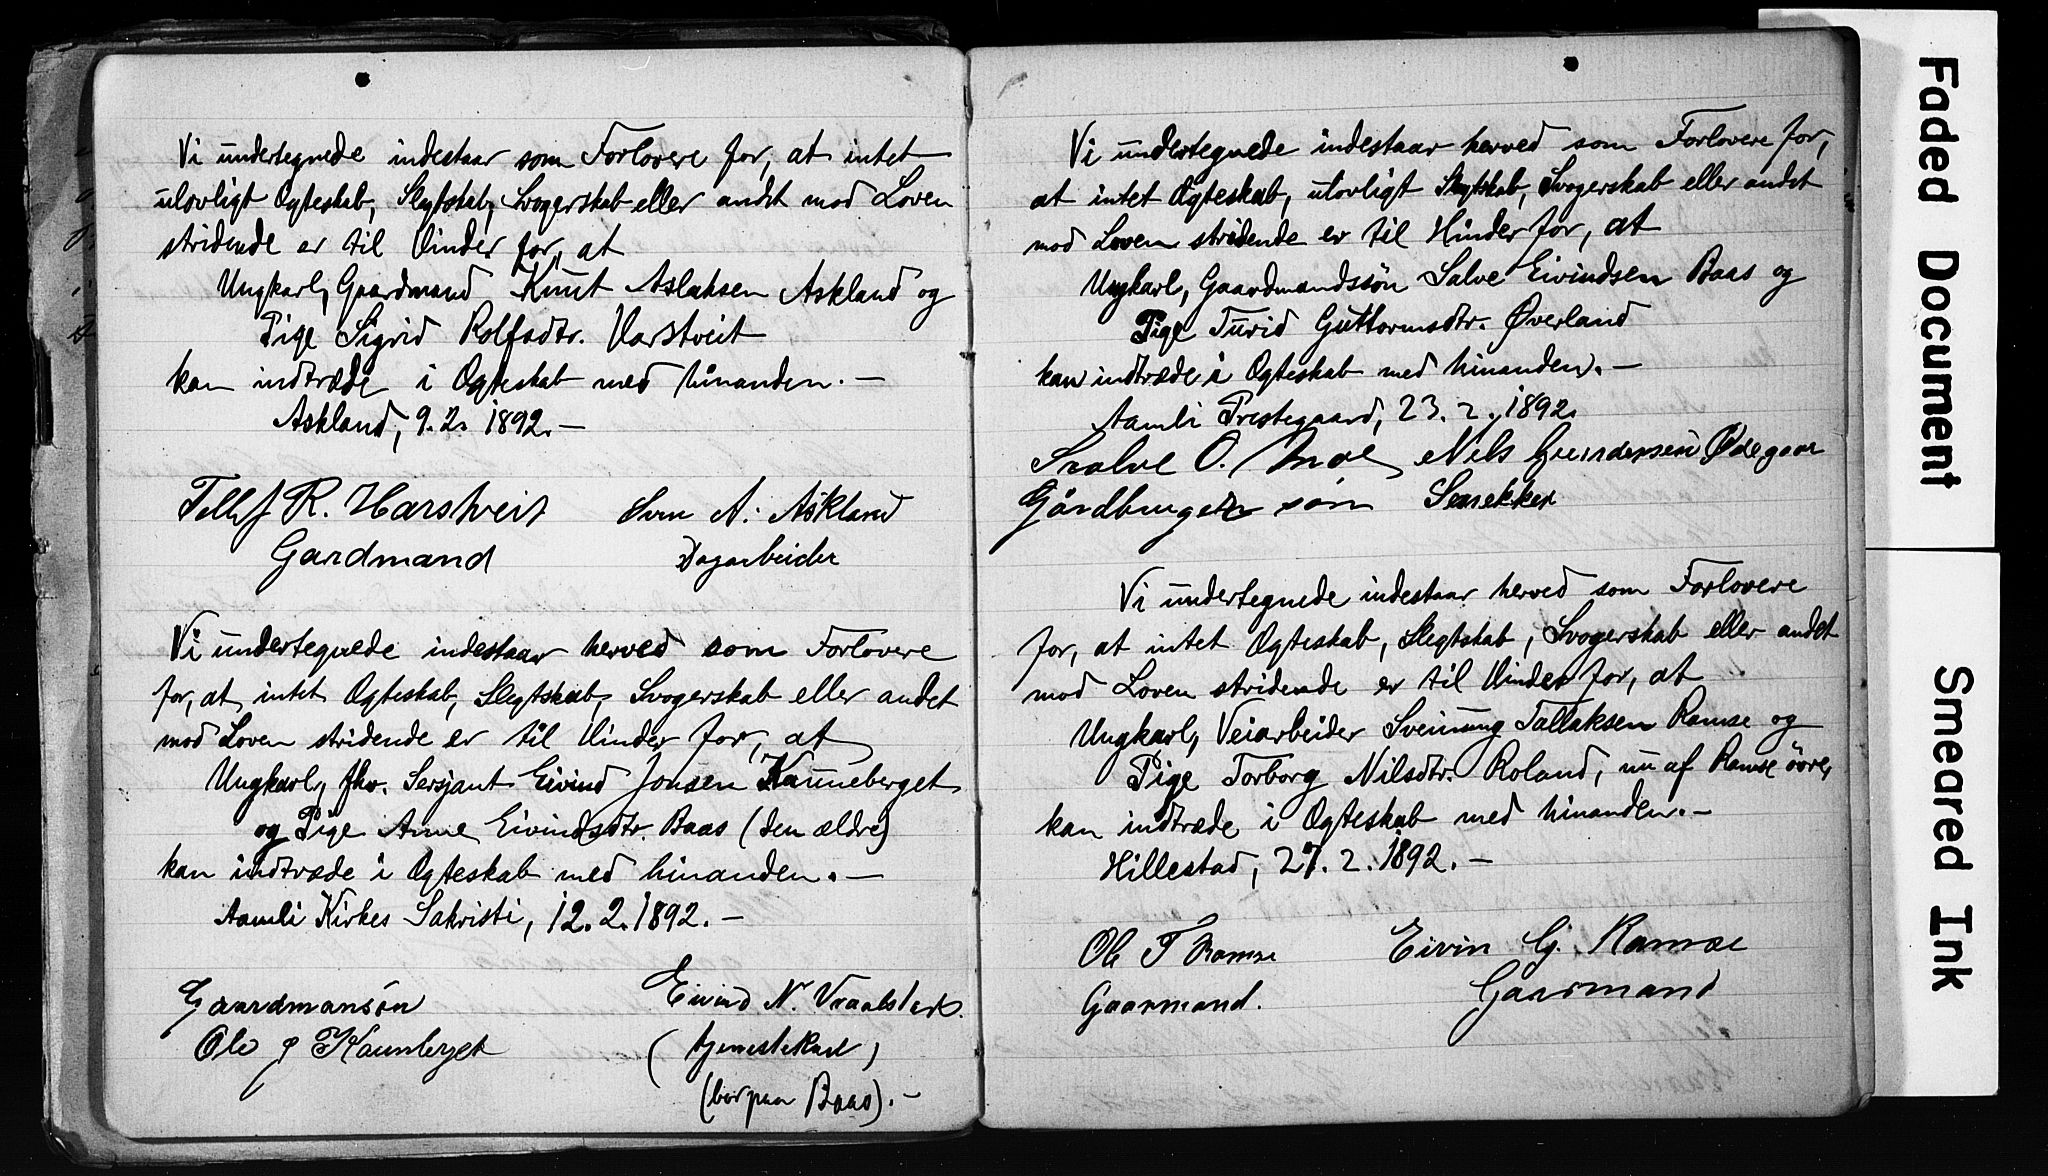 Vi undertegnede indestaar som Forlovere for, at intet
ulovligt Ægteskab, Slegtskab, Svogerskab eller andet mod Loven
stridende er til Hinder for, at
Ungkarl, Gaardmand Knut Aslaksen Askland og
Pige Sigrid Rolfsdtr. Harstveit
kan indtræde i Ægteskab med hinanden. —
Askland, 9.2. 1892. —
Tellef R. Harstveit Sven A. Askland
Gardmand Dagarbeider
Vi undertegnede indestaar herved som Forlovere
for, at intet Ægteskab, Slegtskab, Svogerskab eller andet
mod Loven stridende er til Hinder for, at
Ungkarl, fhv. Sersjant Eivind Jonsen Kauneberget
og Pige Anne Eivindsdtr. Baas (den ældre)
kan indtræde i Ægteskab med hinanden. —
Aamli Kirkes Sakristi, 12.2.1892. —
Gaardmansøn Eivind N. Vraalstad.
Ole J Kaunberget (tjenestekarl)
(bor paa Baas). —
Vi undertegnede indestaar herved som Forlovere for,
at intet Ægteskab, ulovligt Slegtskab, Svogerskab eller andet
mod Loven stridende er til Hinder for, at
Ungkarl, Gaardmandssön Salve Eivindsen Baas og
Pige Turid Guttormsdtr. Øverland
kan indtræde i Ægteskab med hinanden. —
Aamli Prestegaard, 23. 2. 1892.
Salve O. Moe Nils Gundersen Ødegaar
Gårdbruger søn Snekker
Vi undertegnede indestaar herved som Forlovere
for, at intet Ægteskab, Slegtskab, Svogerskab eller andet
mod Loven stridende er til Hinder for, at
Ungkarl, Veiarbeider Sveinung Tallaksen Ramse og
Pige Torborg Nilsdtr. Roland, nu af Ramse övre,
kan indtræde i Ægteskab med hinanden. —
Hillestad, 27. 2. 1892. —
Ole T Ramse Eivin G. Ramse
Gaarmand. Gaarmand
Faded Document
Smeared Ink